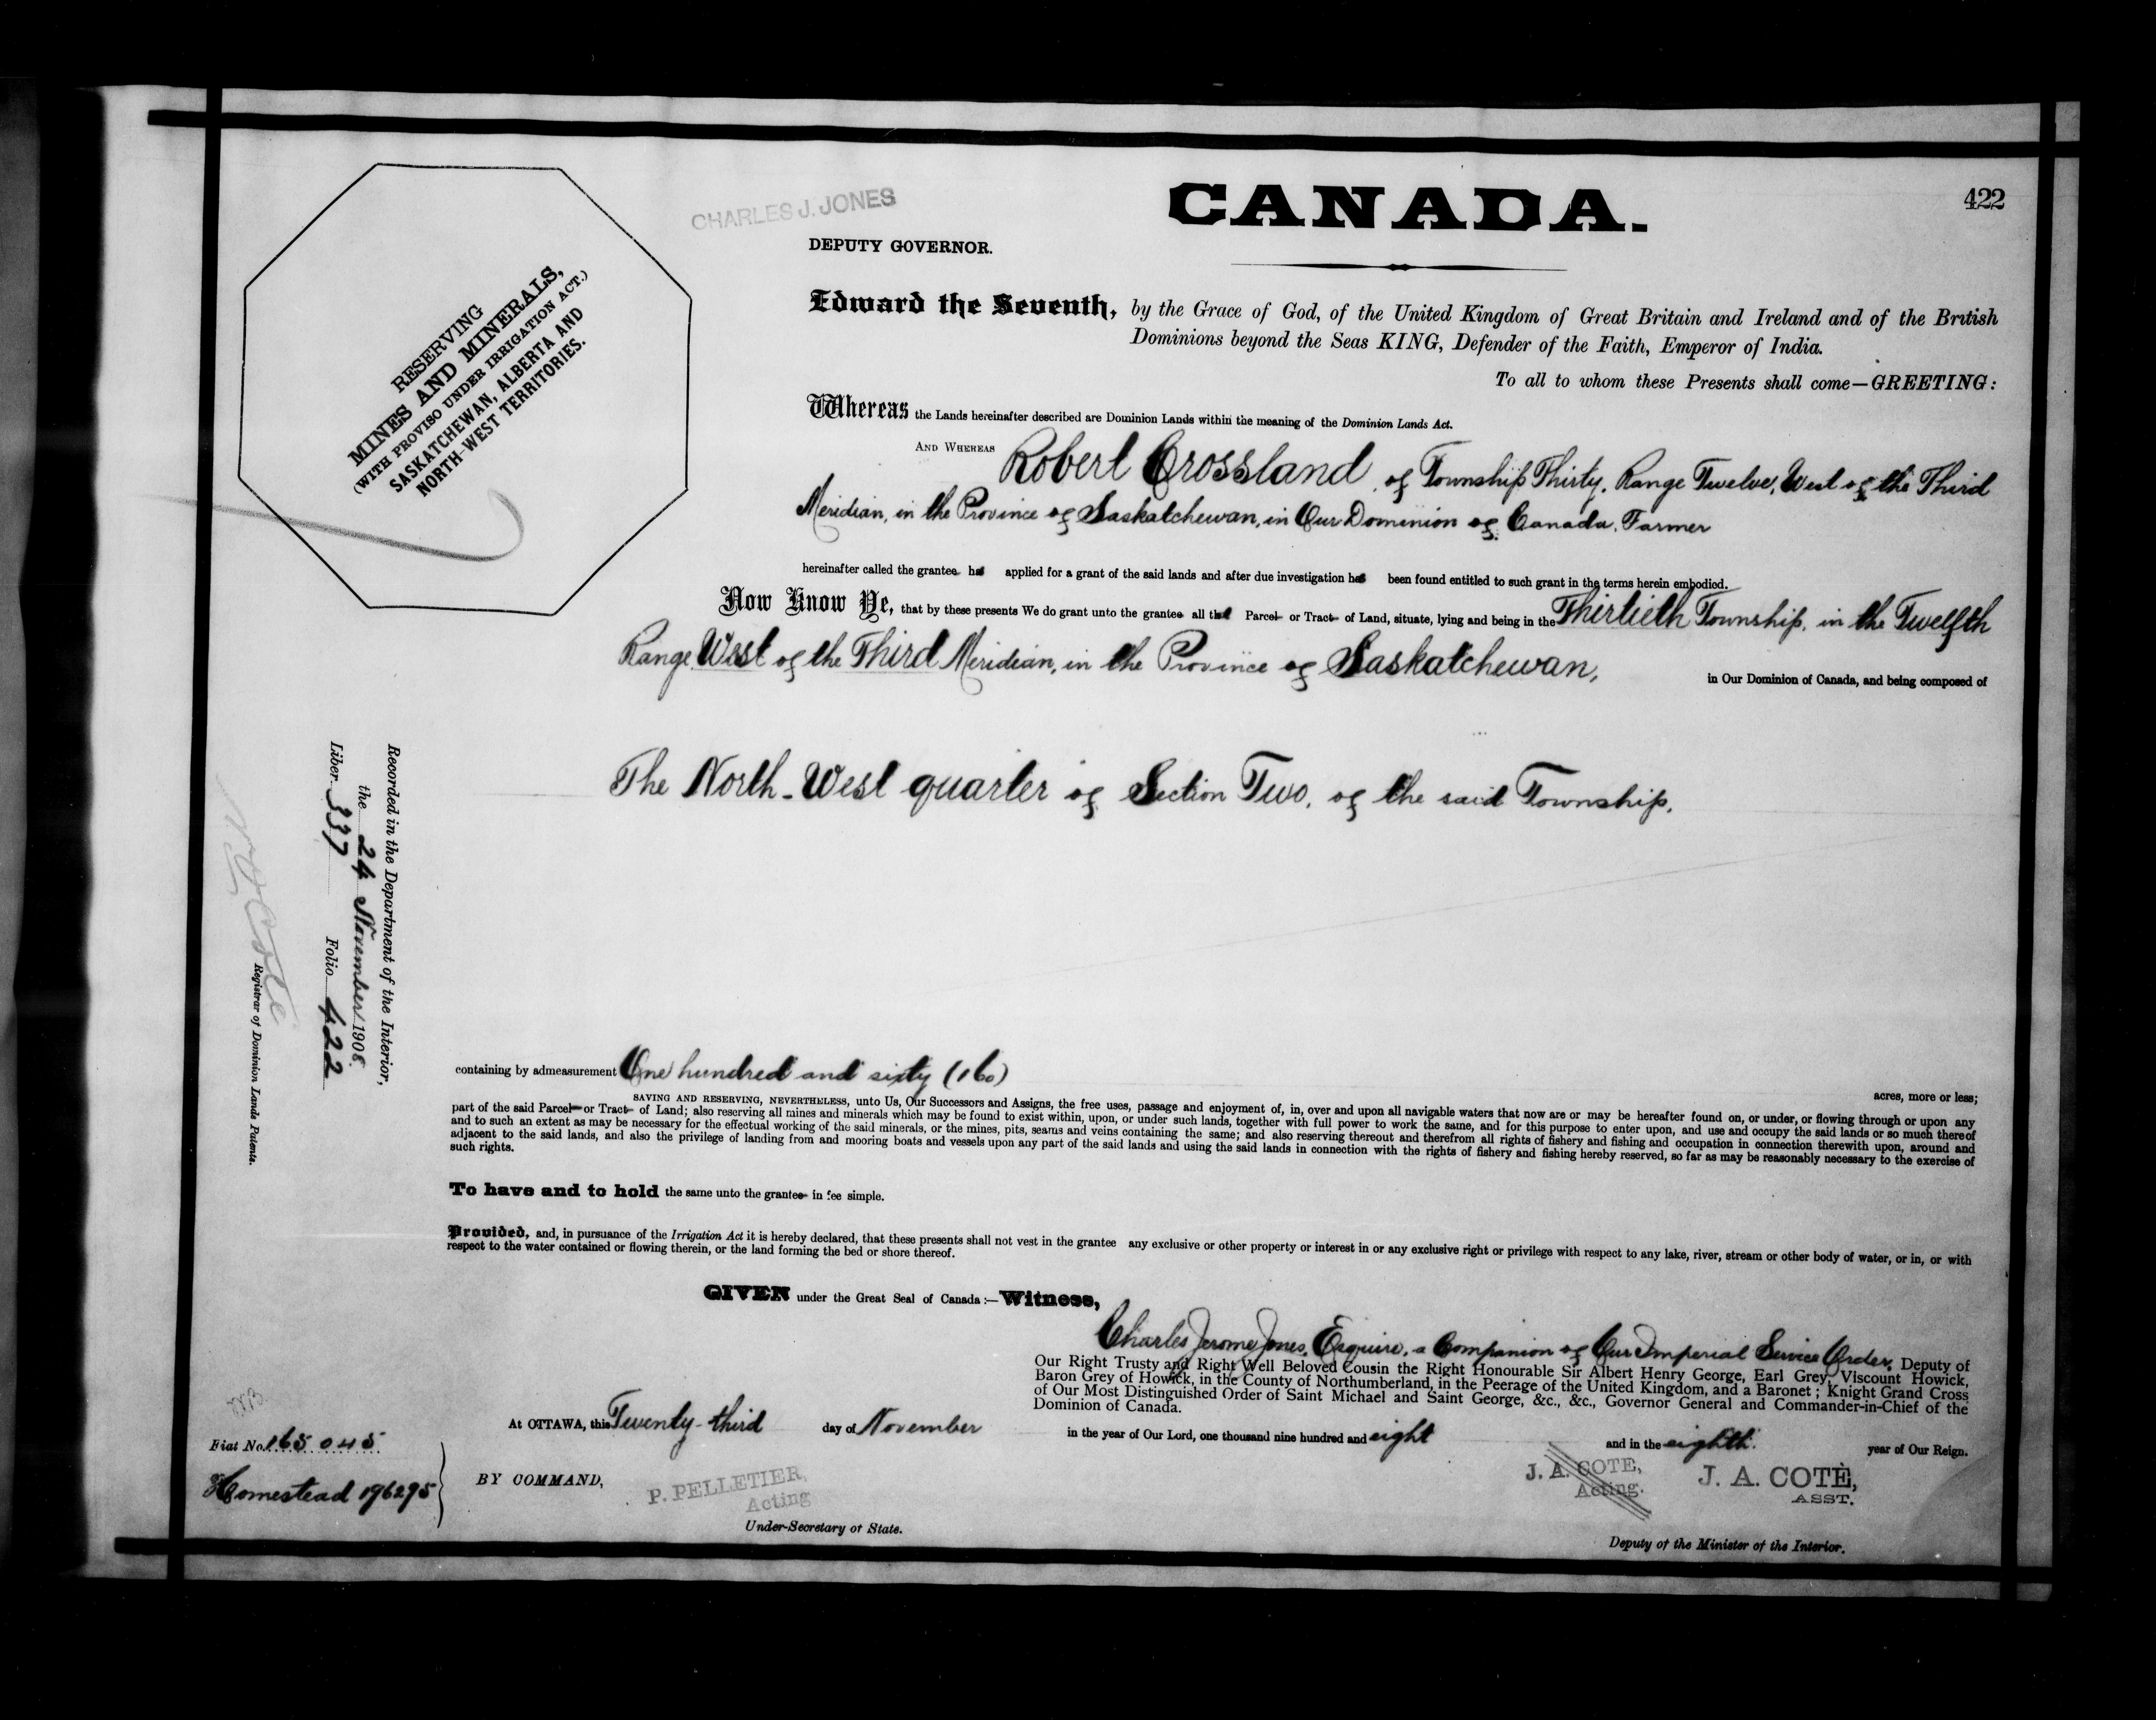 422
CANADA.
CHARLES J. JONES
DEPUTY GOVERNOR.
RESERVING
MINES AND MINERALS,
(WITH PROVISO UNDER IRRIGATION ACT.)
SASKATCHEWAN, ALBERTA AND
NORTH-WEST TERRITORIES.
Edward the Seventh, by the Grace of God, of the United Kingdom of Great Britain and Ireland and of the British
Dominions beyond the Seas KING, Defender of the Faith, Emperor of India.
To all to whom these Presents shall come—GREETING:
Whereas the Lands hereinafter described are Dominion Lands within the meaning of the Dominion Lands Act.
AND WHEREAS Robert Crossland, of Township Thirty, Range Twelve, West of the Third
Meridian, in the Province of Saskatchewan, in Our Dominion of Canada, Farmer
hereinafter called the grantee has applied for a grant of the said lands and after due investigation has been found entitled to such grant in the terms herein embodied.
Now Know Ye, that by these presents We do grant unto the grantee all that Parcel or Tract of Land, situate, lying and being in the Thirtieth Township, in the Twelfth
Range West of the Third Meridian, in the Province of Saskatchewan, in Our Dominion of Canada, and being composed of
The North-West quarter of Section Two, of the said Township,
Recorded in the Department of the Interior,
the 24 November 1908
Liber 337 Folio 422
Registrar of Dominion Lands Patents.
containing by admeasurement One hundred and sixty (160) acres, more or less;
SAVING AND RESERVING, NEVERTHELESS, unto Us, Our Successors and Assigns, the free uses, passage and enjoyment of, in, over and upon all navigable waters that now are or may be hereafter found on, or under, or flowing through or upon any
part of the said Parcel or Tract of Land; also reserving all mines and minerals which may be found to exist within, upon, or under such lands, together with full power to work the same, and for this purpose to enter upon, and use and occupy the said lands or so much thereof
and to such an extent as may be necessary for the effectual working of the said minerals, or the mines, pits, seams and veins containing the same; and also reserving thereout and therefrom all rights of fishery and fishing and occupation in connection therewith upon, around and
adjacent to the said lands, and also the privilege of landing from and mooring boats and vessels upon any part of the said lands and using the said lands in connection with the rights of fishery and fishing hereby reserved, so far as may be reasonably necessary to the exercise of
such rights.
To have and to hold the same unto the grantee in fee simple.
Provided, and, in pursuance of the Irrigation Act it is hereby declared, that these presents shall not vest in the grantee any exclusive or other property or interest in or any exclusive right or privilege with respect to any lake, river, stream or other body of water, or in, or with
respect to the water contained or flowing therein, or the land forming the bed or shore thereof.
GIVEN under the Great Seal of Canada:—Witness,
Charles Jerome Jones, Esquire, a Companion of Our Imperial Service Order, Deputy of
Our Right Trusty and Right Well Beloved Cousin the Right Honourable Sir Albert Henry George, Earl Grey, Viscount Howick,
Baron Grey of Howick, in the County of Northumberland, in the Peerage of the United Kingdom, and a Baronet; Knight Grand Cross
of Our Most Distinguished Order of Saint Michael and Saint George, &c., &c., Governor General and Commander-in-Chief of the
Dominion of Canada.
At OTTAWA, this Twenty-third day of November in the year of Our Lord, one thousand nine hundred and eight and in the eighth year of Our Reign.
Fiat No. 165045
Homestead 196295
BY COMMAND,
P. PELLETIER,
Acting
Under-Secretary of State.
J. A. COTE,
Acting.
J. A. COTÈ,
ASST.
Deputy of the Minister of the Interior.